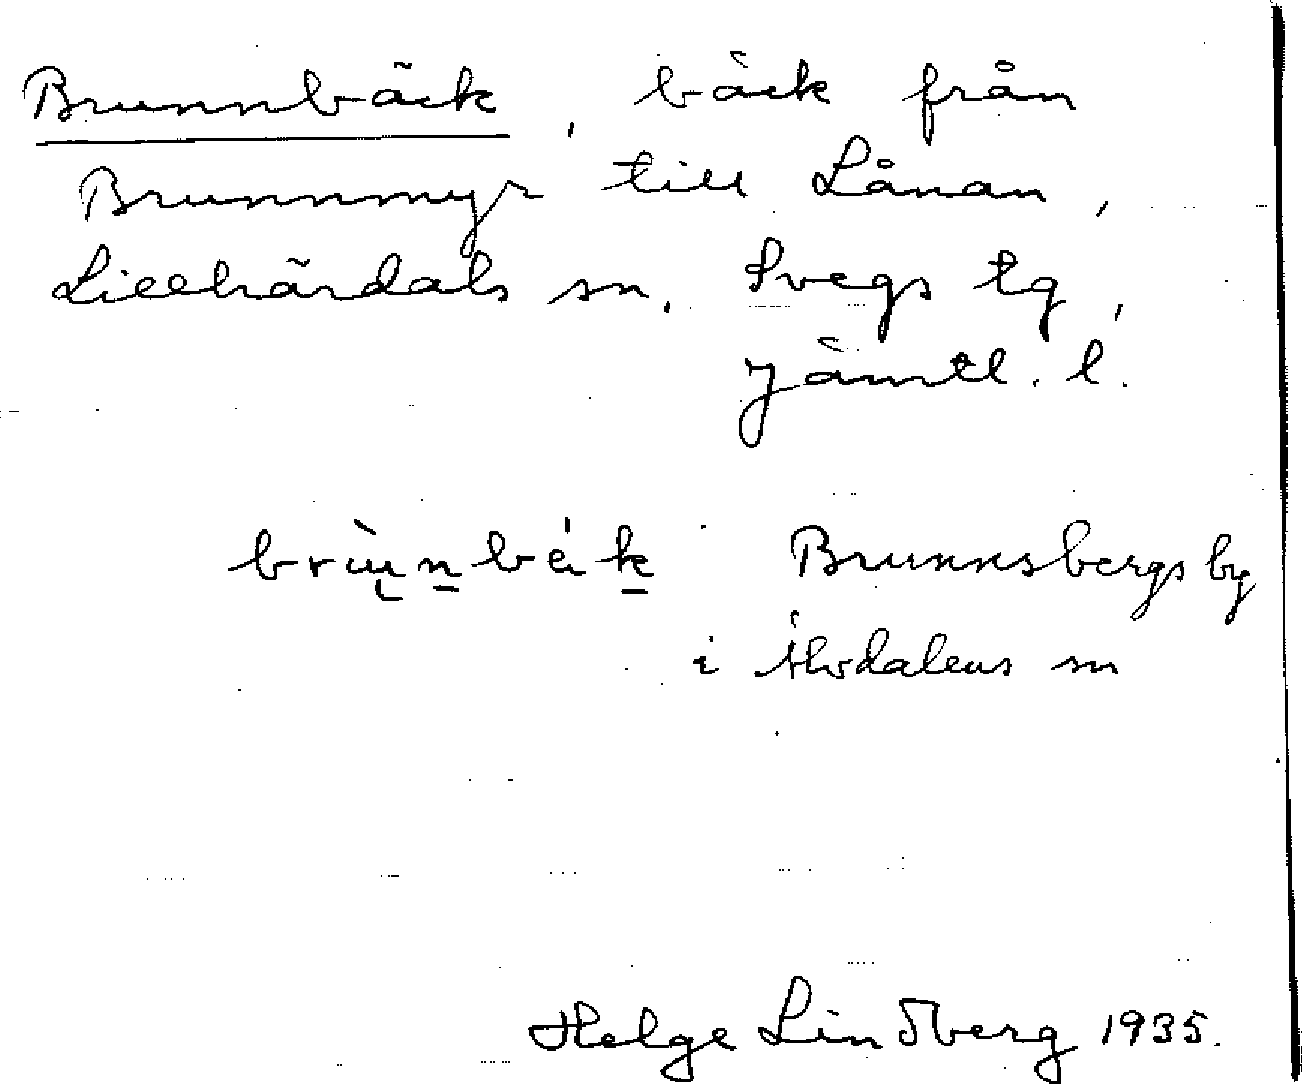 Brunnbäck, bäck från
Brunnmyr till Lånan,
Lillhärdals sn. Svegs tg,
Jämtl. l.
Brunnsbergs by
i Älvdalens sn
Helge Lindberg 1935.